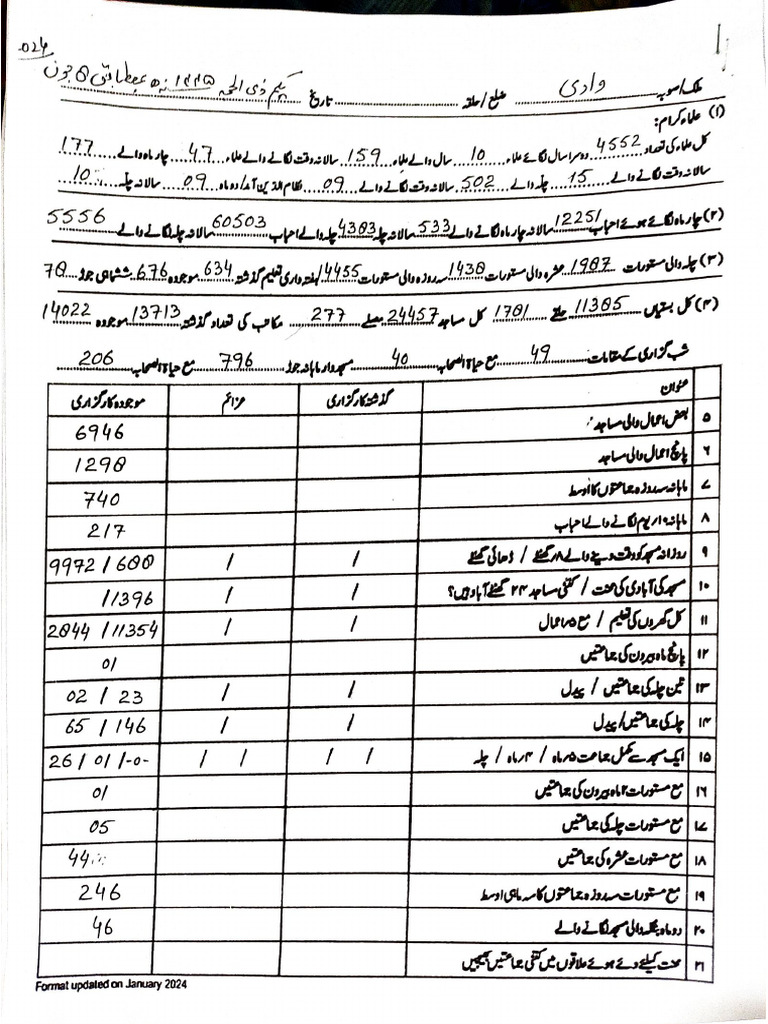 024
ملک/صوبہ وادی ضلع/حلقہ تاریخ یکم ذی الحجہ ۱۴۴۵ھ بمطابق 8 جون
(۱) علماء کرام:
کل علماء کی تعداد 4552 دوسرا سال لگائے علماء 10 سال والے علماء 159 سالانہ وقت لگانے والے علماء 47 چار ماہ والے 177
سالانہ وقت لگانے والے 15 چلہ والے 502 لگانے والے 09 نظام الدین آمد/دو ماہ 09 سالانہ چلہ 10
(۲) چار ماہ لگائے ہوئے احباب 12251 سالانہ چار ماہ لگانے والے 533 سالانہ چلہ 4383 چلہ والے احباب 60503 سالانہ چلہ لگانے والے 5556
(۳) چلہ والی مستورات 1987 عشرہ والی مستورات 1438 سہ روزہ والی مستورات 14455 ہفتہ واری تعلیم گذشتہ 634 موجودہ 676 ششماہی جوڑ 78
(۴) کل بستیاں 11385 حلقے 1781 کل مساجد 24457 مصلے 277 مکاتب کی تعداد گذشتہ 13713 موجودہ 14022
شب گزاری کے مقامات 49 مع حیاۃ الصحابہ 40 مسجدوار ماہانہ جوڑ 796 مع حیاۃ الصحابہ 206
عنوان گذشتہ کارگزاری عزائم موجودہ کارگزاری
۵ بعض اعمال والی مساجد 6946
۶ پانچ اعمال والی مساجد 1298
۷ ماہانہ سہ روزہ جماعتوں کا اوسط 740
۸ ماہانہ ۱۰ یوم لگانے والے احباب 217
۹ روزانہ مسجد کو وقت دینے والے ۸ گھنٹے / ڈھائی گھنٹے / / 9972 / 688
۱۰ مسجد کی آبادی کی محنت / کتنی مساجد ۲۴ گھنٹے آباد ہیں؟ / / /1396
۱۱ کل گھروں کی تعلیم / مع ۵ اعمال / / 2844 / 11354
۱۲ پانچ ماہ بیرون کی جماعتیں 01
۱۳ تین چلہ کی جماعتیں / پیدل / / 02 / 23
۱۴ چلہ کی جماعتیں/پیدل / / 65 / 146
۱۵ ایک مسجد سے مکمل جماعت ۵ ماہ / ۴ ماہ / چلہ / / / / 26 / 01 / -0-
۱۶ مع مستورات ۲ ماہ بیرون کی جماعتیں 01
۱۷ مع مستورات چلہ کی جماعتیں 05
۱۸ مع مستورات عشرہ کی جماعتیں 44
۱۹ مع مستورات سہ روزہ جماعتوں کا سہ ماہی اوسط 246
۲۰ دو ماہ بنگلہ والی مسجد لگانے والے 46
۲۱ محنت کیلئے دئے ہوئے علاقوں میں کتنی جماعتیں بھیجیں
Format updated on January 2024